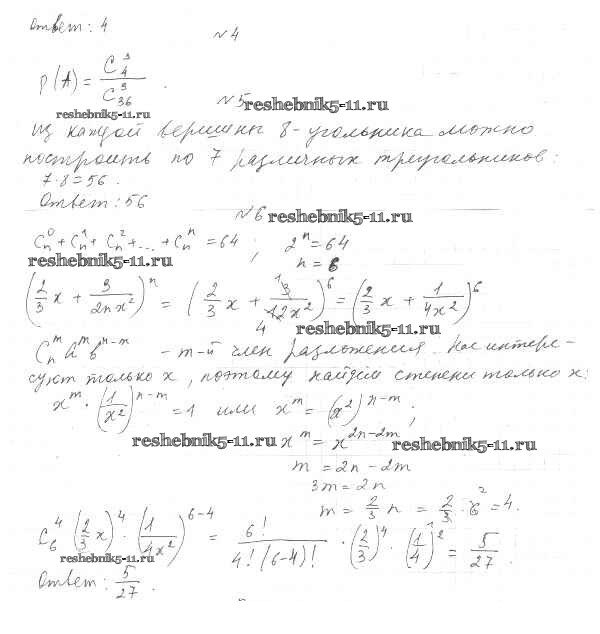 Ответ: 4
№4
P(A) = C₄³ / C₃₆³ .
reshebnik5-11.ru
№5 reshebnik5-11.ru
Из каждой вершины 8-угольника можно
построить по 7 различных треугольников:
7·8=56.
Ответ: 56
№6 reshebnik5-11.ru
Cₙ⁰ + Cₙ¹ + Cₙ² + ... + Cₙⁿ = 64 ; 2ⁿ = 64
reshebnik5-11.ru n = 6
(2/3 x + 3/(2nx²))ⁿ = (2/3 x + 3/(12x²))⁶ = (2/3 x + 1/(4x²))⁶
reshebnik5-11.ru
Cₙᵐ aᵐ bⁿ⁻ᵐ - m-й член разложения. Нас интере-
суют только x, поэтому найдём степени только x:
xᵐ · (1/x²)ⁿ⁻ᵐ = 1 или xᵐ = (x²)ⁿ⁻ᵐ ;
reshebnik5-11.ru xᵐ = x²ⁿ⁻²ᵐ reshebnik5-11.ru
m = 2n - 2m
3m = 2n
m = 2/3 n = 2/3 · 6 = 4.
C₆⁴ (2/3 x)⁴ · (1/(4x²))⁶⁻⁴ = 6!/(4!(6-4)!) · (2/3)⁴ · (1/4)² = 5/27 .
reshebnik5-11.ru
Ответ: 5/27 .